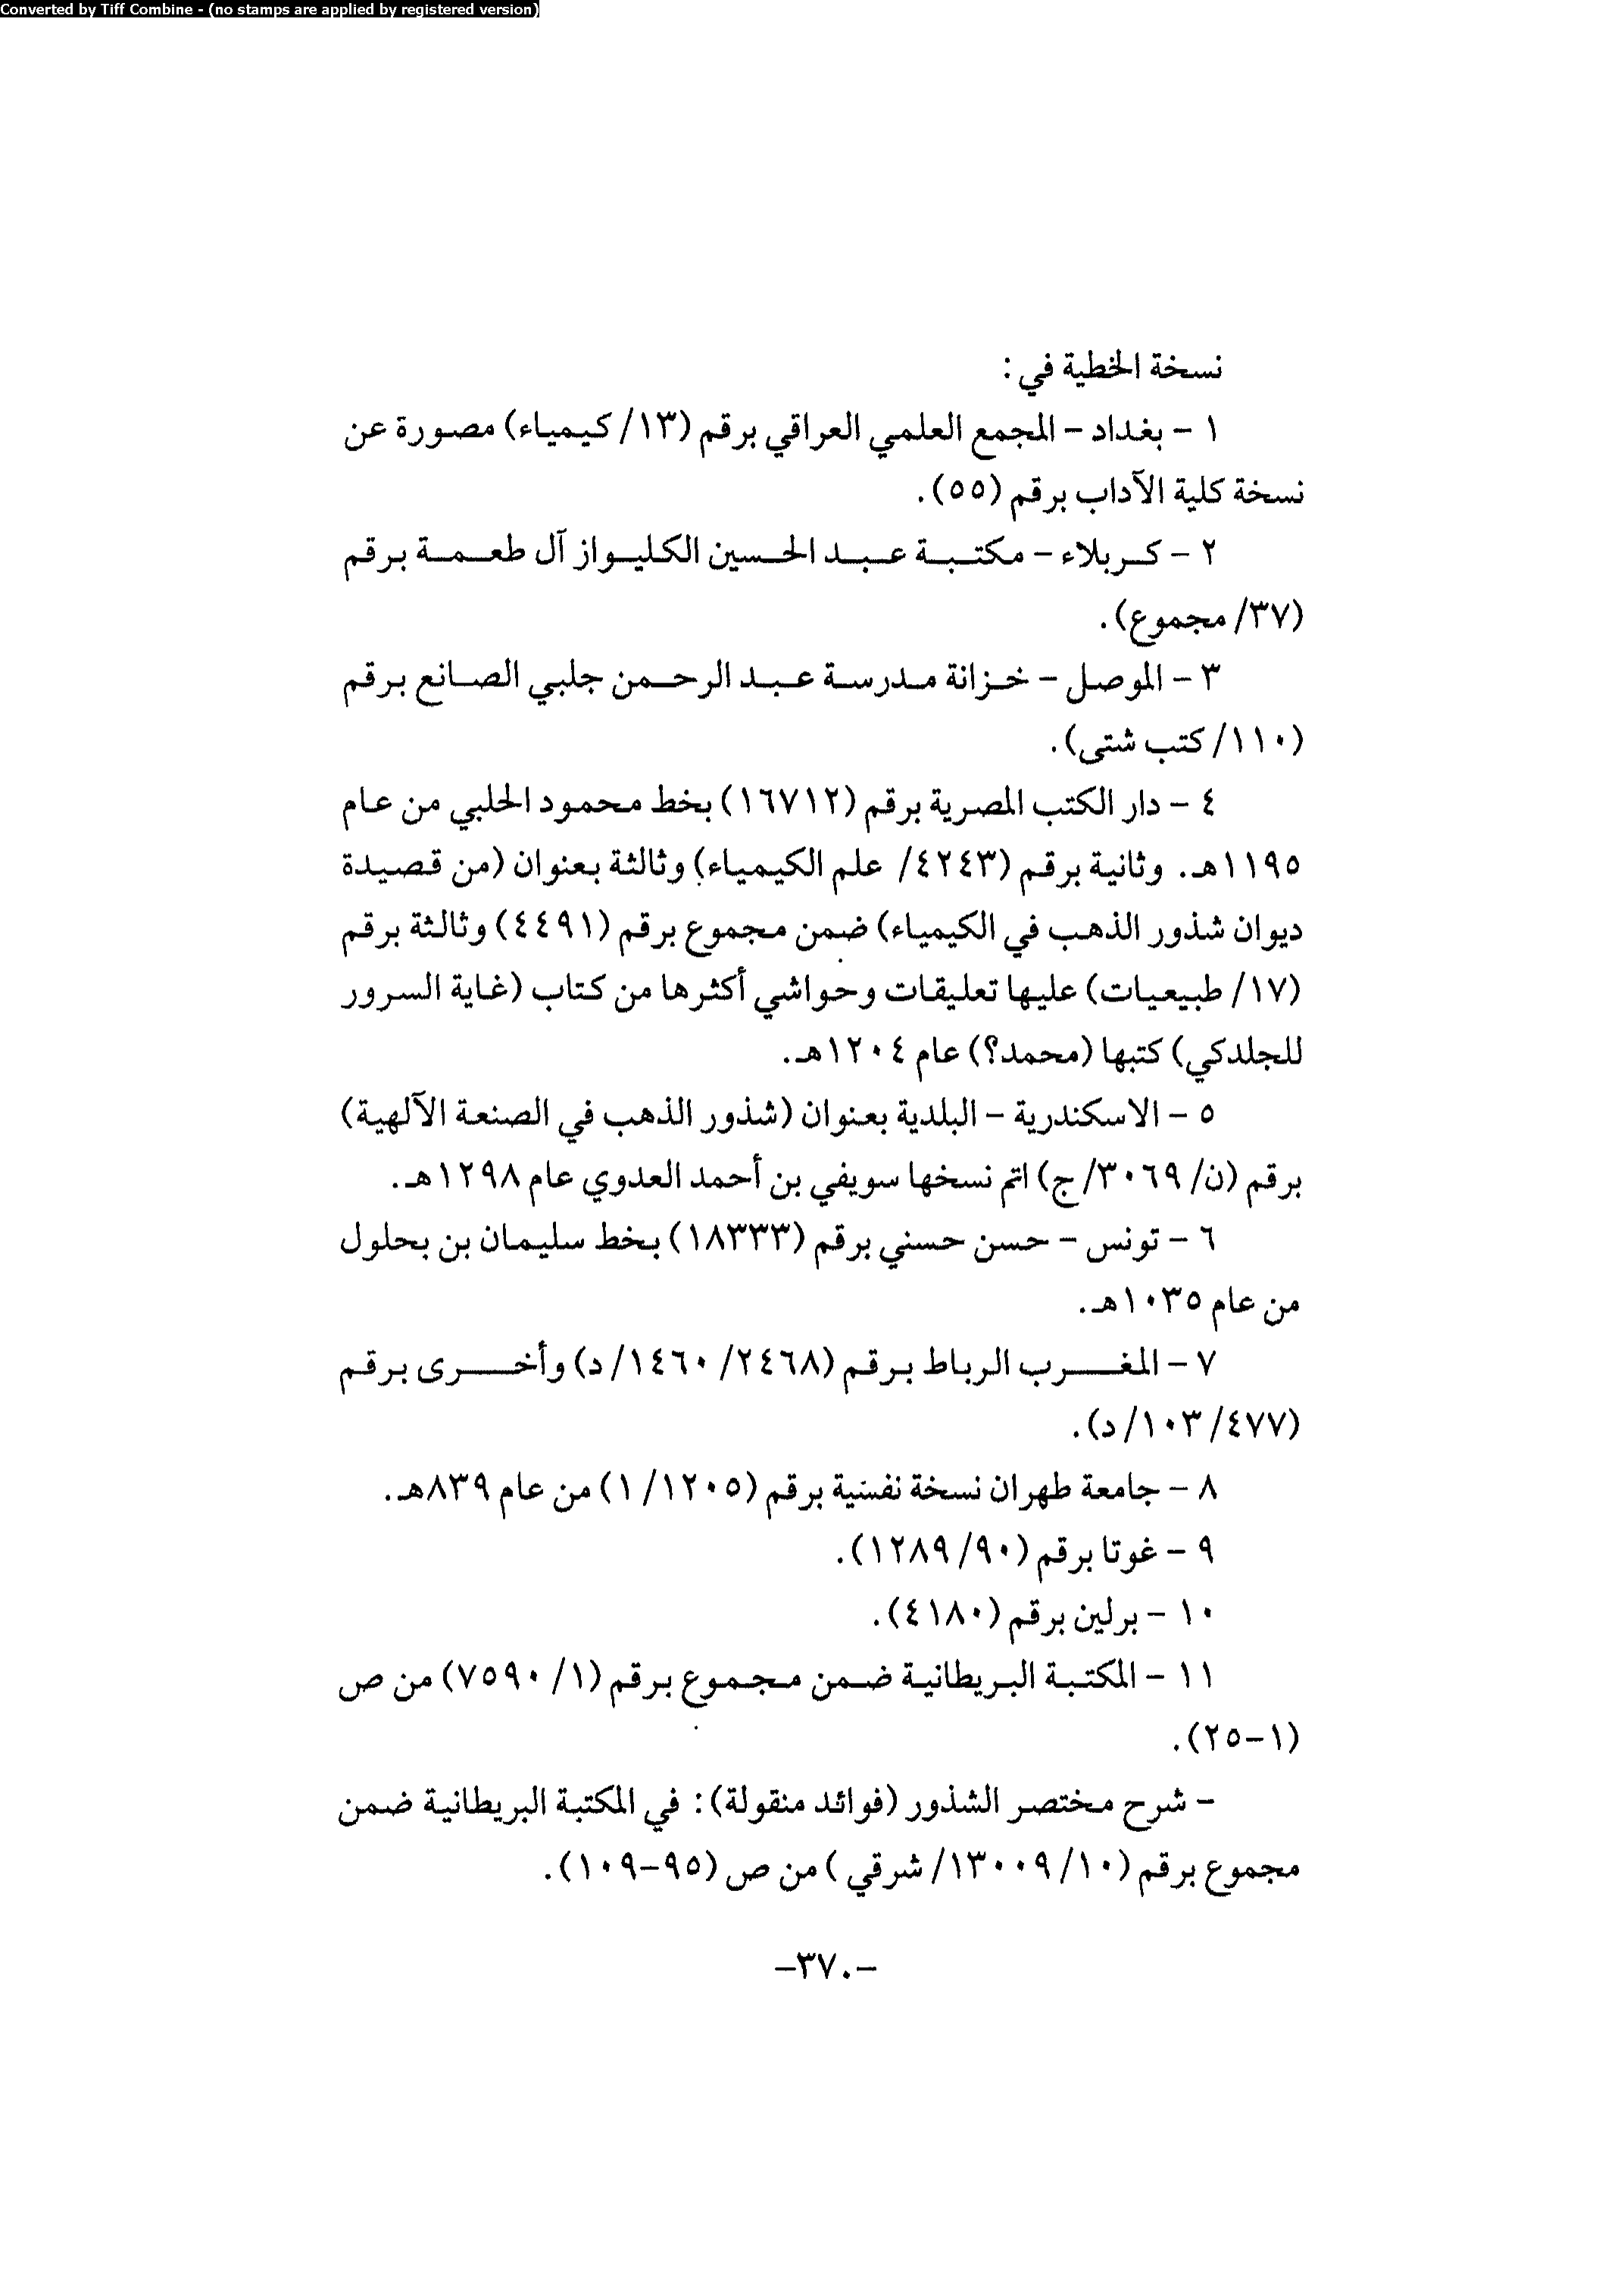 Converted by Tiff Combine - (no stamps are applied by registered version)
نسخة الخطية في :
١ - بغداد - المجمع العلمي العراقي برقم (١٣/ كيمياء) مصورة عن
نسخة كلية الآداب برقم (٥٥).
٢ - كربلاء - مكتبة عبد الحسين الكليواز آل طعمة برقم
(٣٧/ مجموع).
٣ - الموصل - خزانة مدرسة عبد الرحمن جلبي الصانع برقم
(١١٠/ كتب شتى).
٤ - دار الكتب المصرية برقم (١٦٧١٢) بخط محمود الحلبي من عام
١١٩٥هـ. وثانية برقم (٤٢٤٣/ علم الكيمياء) وثالثة بعنوان (من قصيدة
ديوان شذور الذهب في الكيمياء) ضمن مجموع برقم (٤٤٩١) وثالثة برقم
(١٧/ طبيعيات) عليها تعليقات وحواشي أكثرها من كتاب (غاية السرور
للجلدكي) كتبها (محمد؟) عام ١٢٠٤هـ.
٥ - الاسكندرية - البلدية بعنوان (شذور الذهب في الصنعة الآلهية)
برقم (ن/ ٣٠٦٩/ ج) اتم نسخها سويفي بن أحمد العدوي عام ١٢٩٨هـ.
٦ - تونس - حسن حسني برقم (١٨٣٣٣) بخط سليمان بن بحلول
من عام ١٠٣٥هـ.
٧ - المغرب الرباط برقم (٢٤٦٨/ ١٤٦٠/ د) وأخرى برقم
(٤٧٧/ ١٠٣/ د).
٨ - جامعة طهران نسخة نفسية برقم (١٢٠٥/ ١) من عام ٨٣٩هـ.
٩ - غوتا برقم (٩٠/ ١٢٨٩).
١٠ - برلين برقم (٤١٨٠).
١١ - المكتبة البريطانية ضمن مجموع برقم (١/ ٧٥٩٠) من ص
(١-٢٥).
- شرح مختصر الشذور (فوائد منقولة): في المكتبة البريطانية ضمن
مجموع برقم (١٠/ ١٣٠٠٩/ شرقي ) من ص (٩٥-١٠٩).
-٣٧٠-